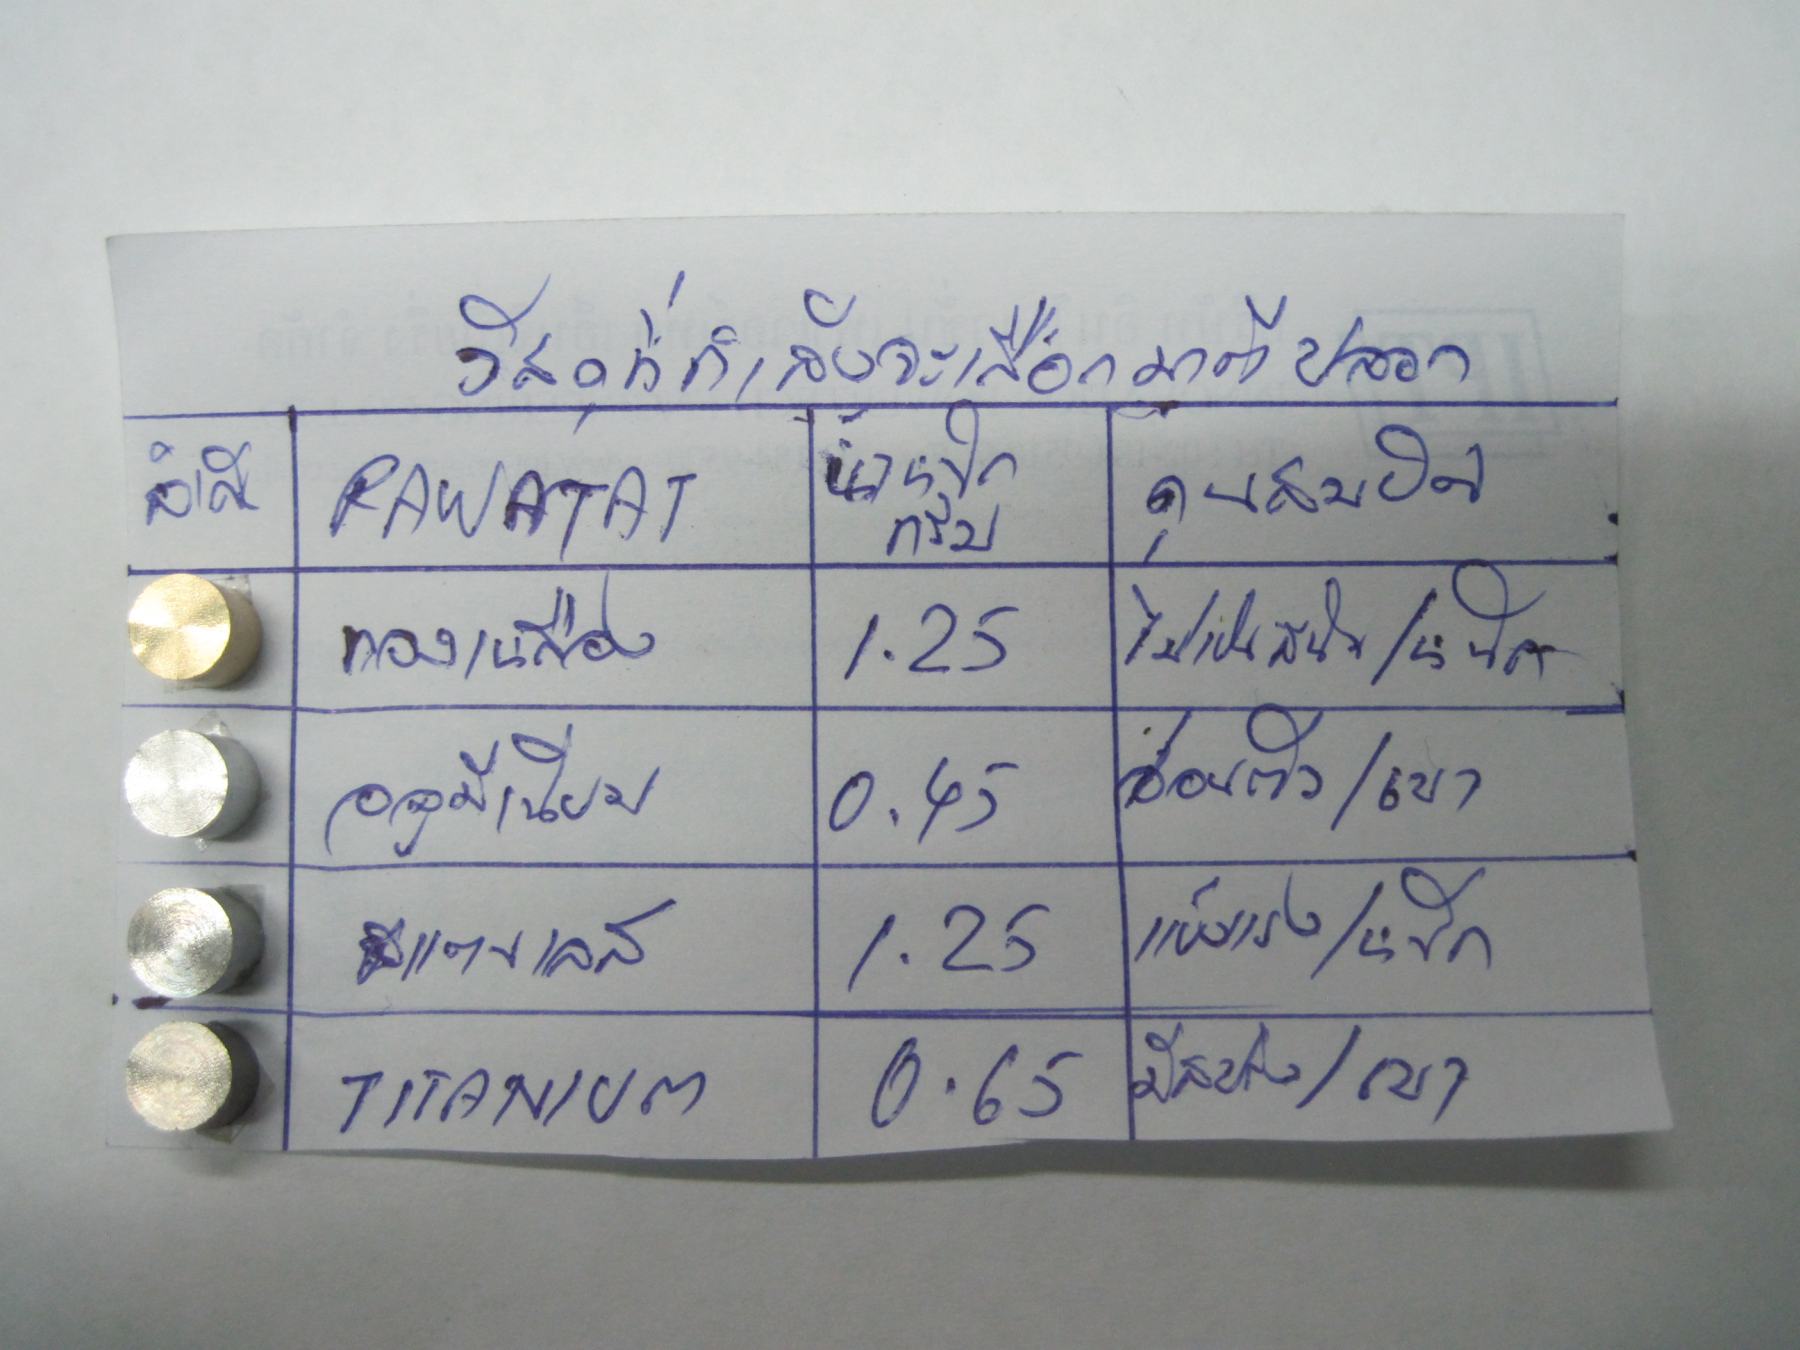 วัสดุที่กำลังจะเลือกมาทำปลอก
RAWATAT
น้ำหนัก
กรัม
คุณสมบัติ
ทองเหลือง 1.25 ไม่เป็นสนิม/หนัก
อลูมิเนียม 0.45 อ่อนตัว/เบา
สแตนเลส 1.25 แข็งแรง/หนัก
TITANIUM 0.65 มีสปริง/เบา